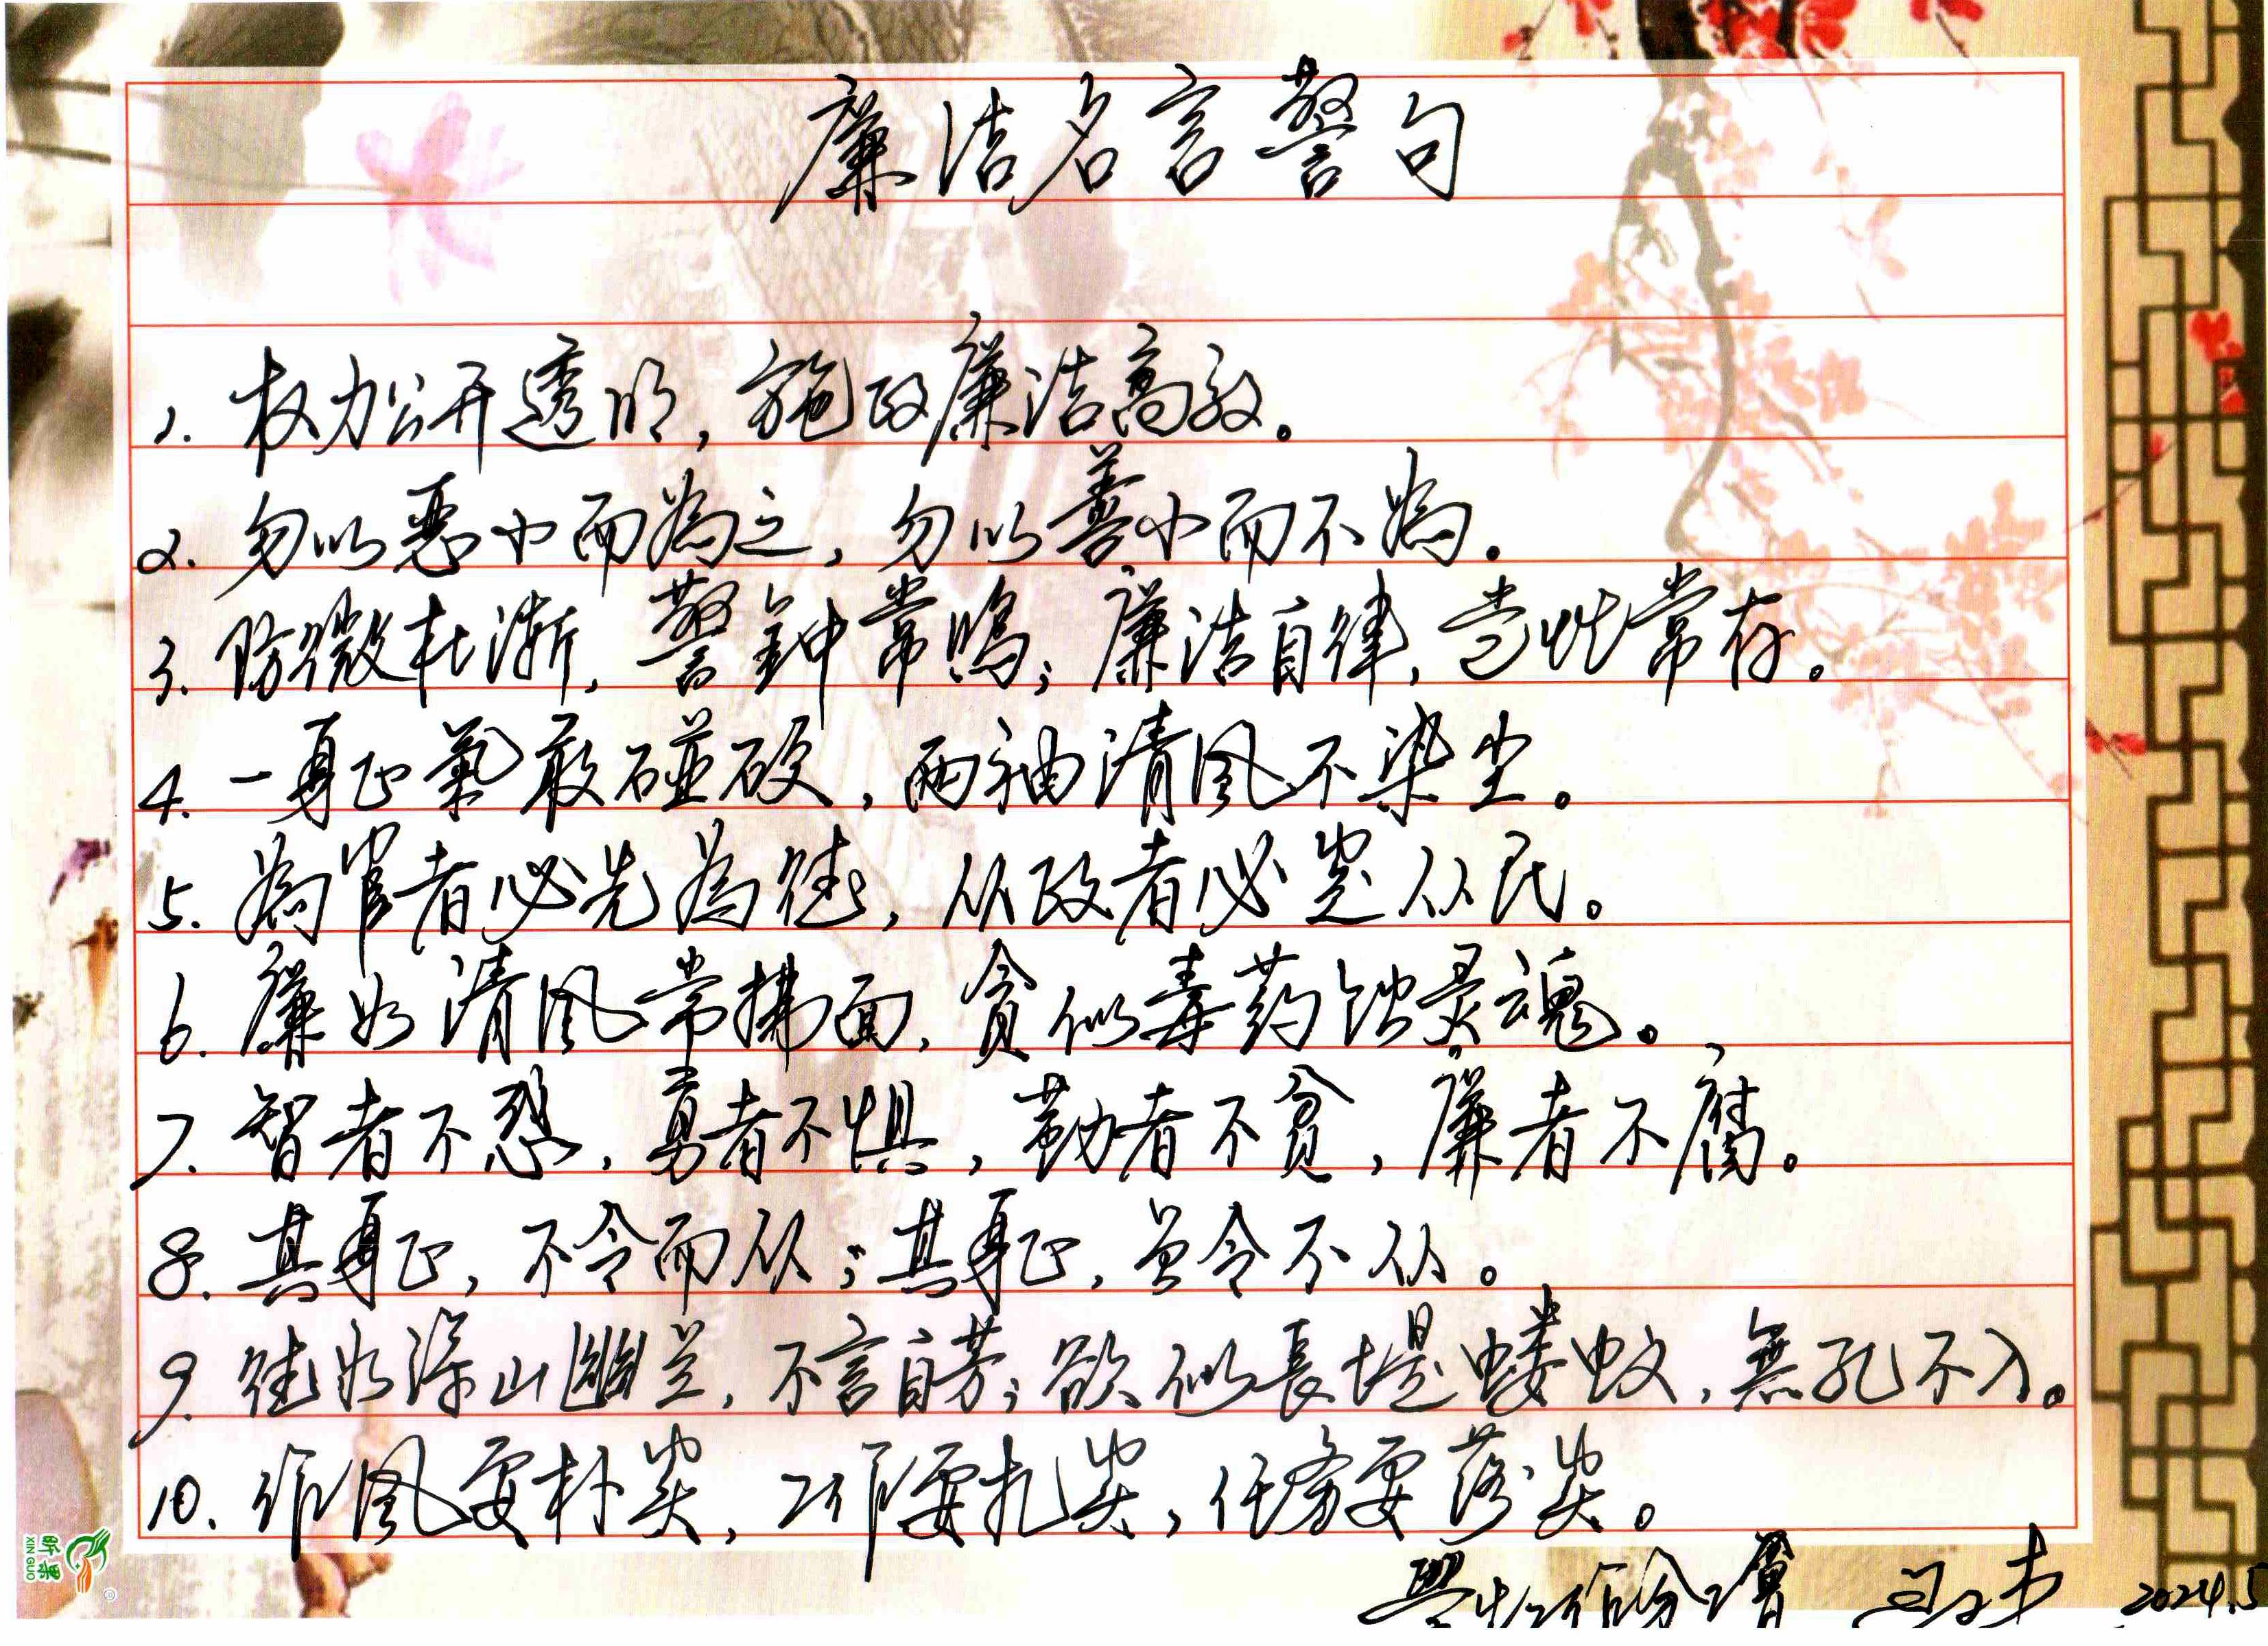 廉洁名言警句
1. 权力公开透明，施政廉洁高效。
2. 勿以恶小而為之，勿以善小而不為。
3. 防微杜渐，警鈡常鳴；廉洁自律，党性常存。
4. 一身正氣敢碰硬，两袖清風不染尘。
5. 為官者必先為德，从政者必定从民。
6. 廉如清風常拂面，贪似毒药蚀灵魂。
7. 智者不惑，勇者不惧，勤者不贫，廉者不腐。
8. 其身正，不令而从；其身正，虽令不从。
9. 德如深山幽兰，不言自芳；欲似長堤蝼蚁，無孔不入。
10. 作風要朴实，工作要扎实，任务要落实。
2024.5
昕果
XIN GUO